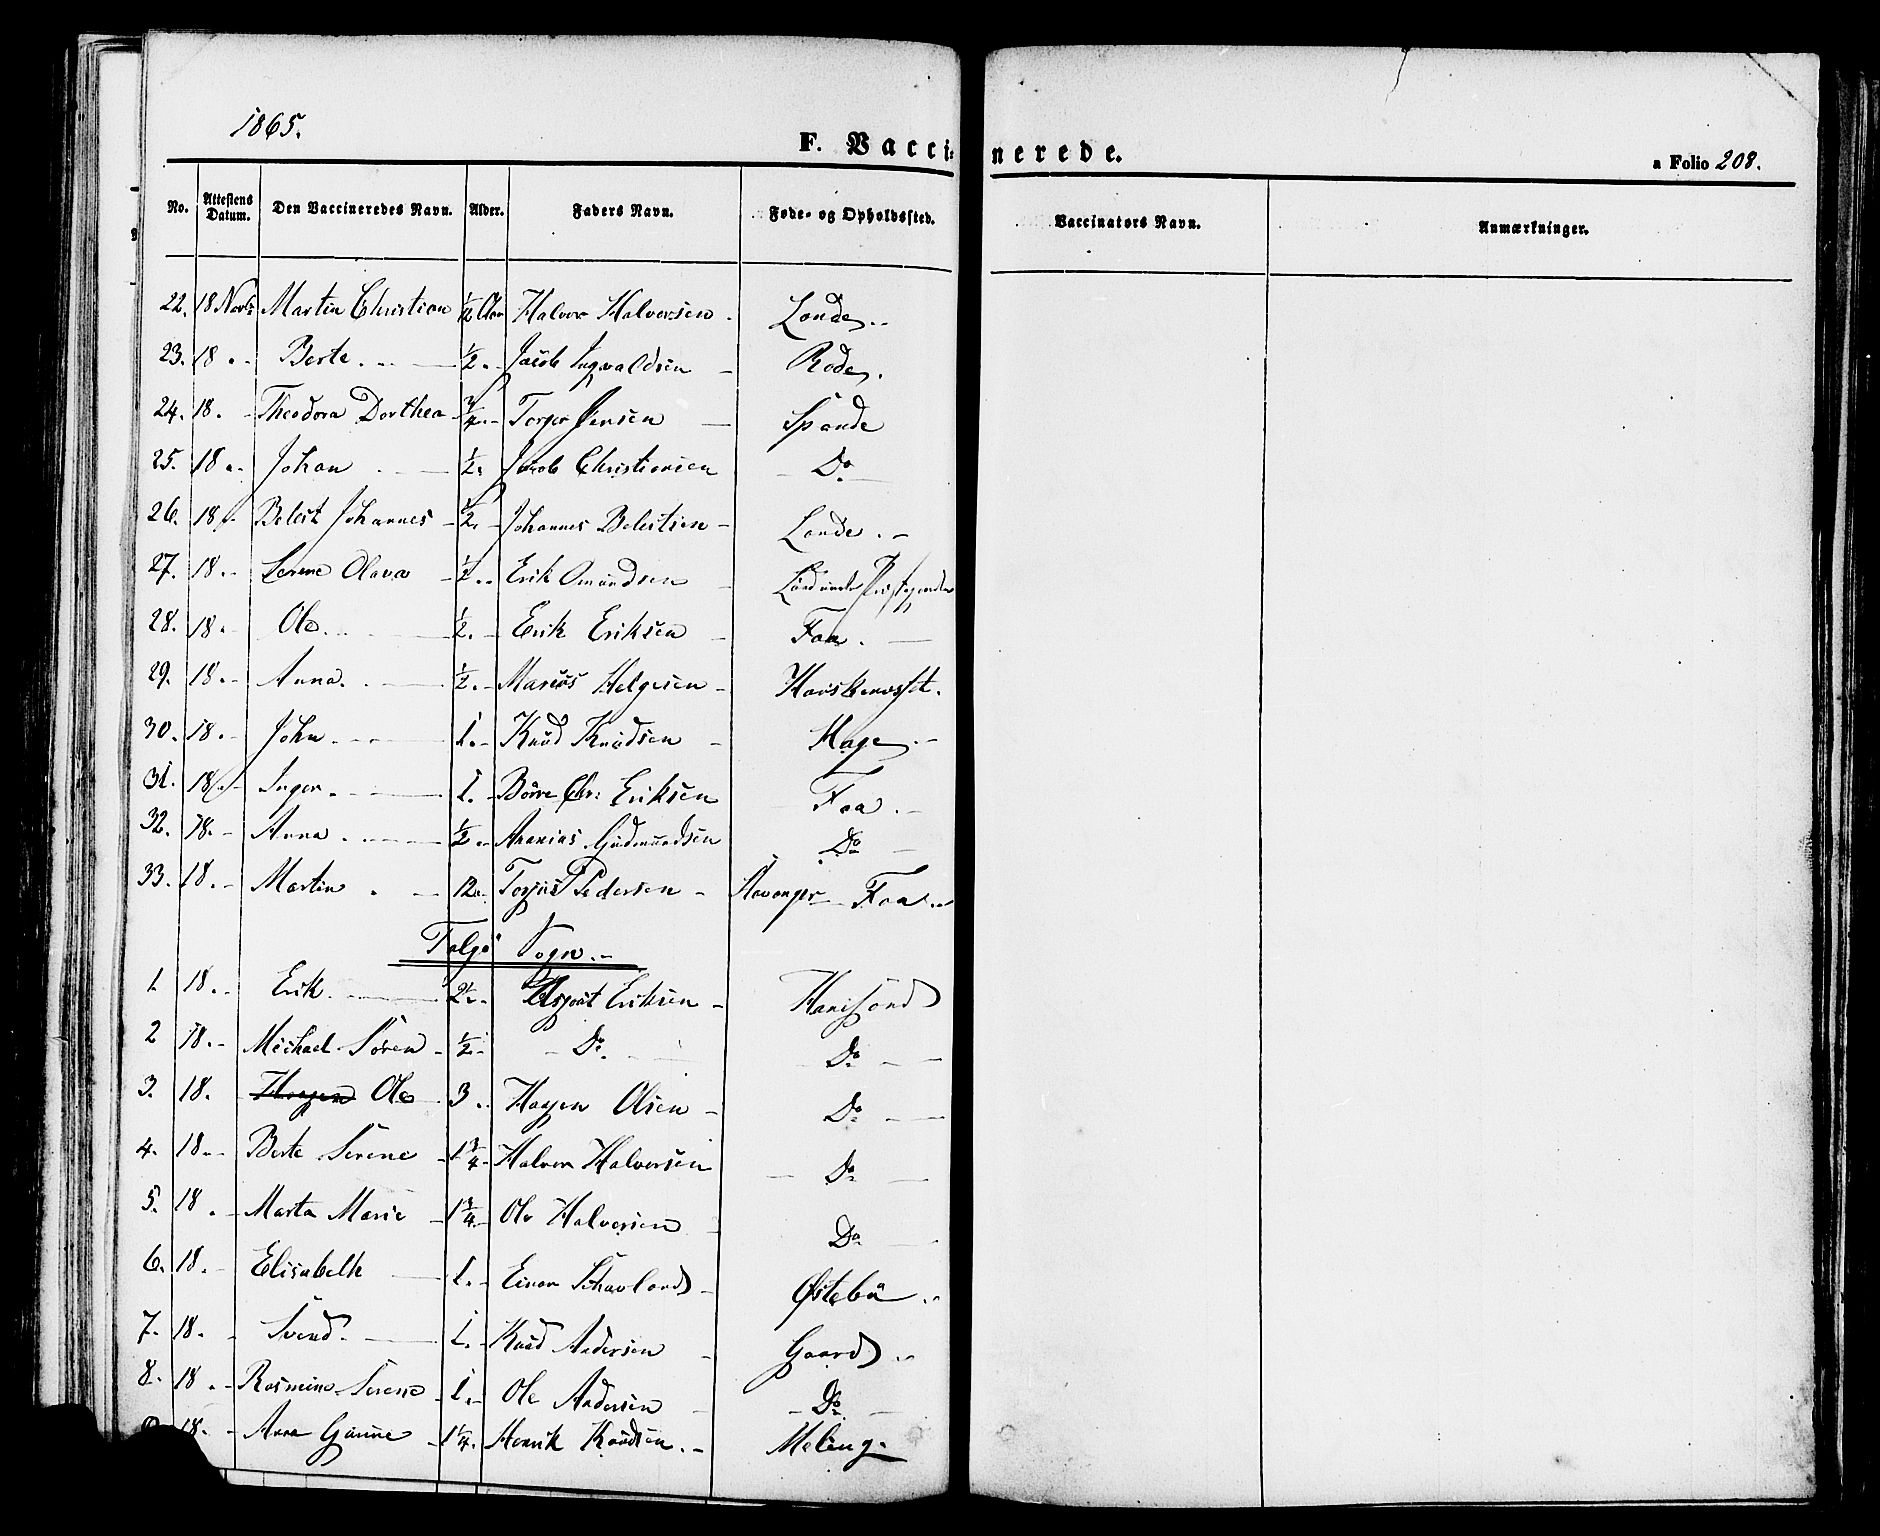 1865.
F. Vaccinerede.
a Folio 208.
No. Attestens Datum. Den Vaccineredes Navn. Alder. Faders Navn. Føde- og Opholdssted. Vaccinators Navn. Anmærkninger.
22. 18 Novbr Martin Christian 1/2 Aar Halvor Halvorsen - Lande -
23. 18 " - Berte - 1/2 - Jacob Ingvaldsen - Røde.
24. 18. - Theodora Dorthea 3/4 - Torger Jensen - Spande
25. 18 - Johan - 1/2. Jacob Christiansen - Do -
26. 18 - Belest Johannes - 1/2 - Johannes Belestsen - Lande. -
27. 18. - Serene Olava - 1/2 - Erik Omundsen -
28. 18. Ole - 1/2. - Erik Eriksen - Faa. -
29. 18. - Anna. - 1/2. - Marius Helgesen -
30. 18. - John - 1. - Knud Knudsen - Hage -
31. 18 - Inger. - 1. - Børre Chr: Eriksen Faa. -
32. 18. - Anna - 1/2 - Ananias Gudmundsen Do -
33. 18. - Martin - 12. Torjus Pedersen - Stavanger - Faa -
Talgø Sogn. -
1. 18. - Erik - 2 1/2. Eriksen -
2 18. - Michael Søren - 1/2 - - Do. Do -
3. 18. Haagen Ole 3. Hagen Olsen - Do -
4. 18 - Berte Serene - 1 3/4 - Halvor Halvorsen - Do -
5. 18. - Marta Marie - 1 3/4 - Ole Halvorsen Do
6. 18. - Elisabeth - 1. - Einar - Østebø.
7. 18. - Svend. - 1. - Knud Andersen - Gaard -
8. 18 - Rasmine Serene - 1. - Ole Andersen - Do -
18. - Anna Gurine - 1 1/4. Henrik Knudsen. - Meling.